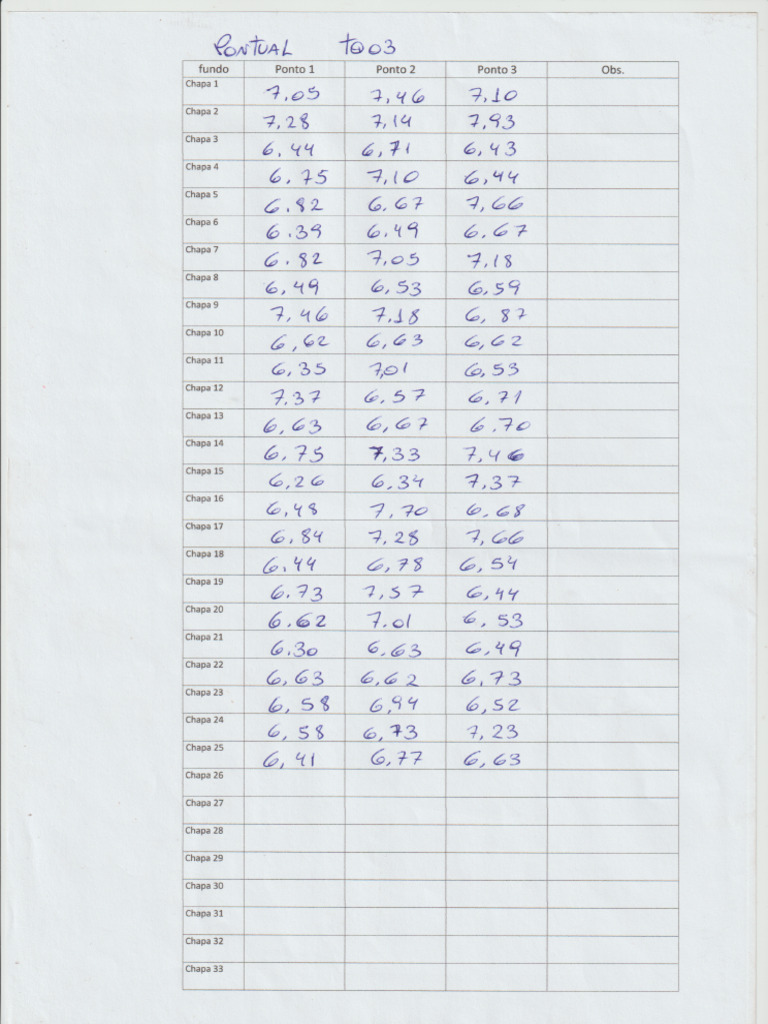 PONTUAL TQ03
fundo Ponto 1 Ponto 2 Ponto 3 Obs.
Chapa 1 7,05 7,46 7,10
Chapa 2 7,28 7,14 7,93
Chapa 3 6,44 6,71 6,43
Chapa 4 6.75 7,10 6,44
Chapa 5 6.82 6.67 7,66
Chapa 6 6.39 6.49 6.67
Chapa 7 6.82 7,05 7,18
Chapa 8 6,49 6,53 6,59
Chapa 9 7,46 7,18 6,87
Chapa 10 6,62 6,63 6,62
Chapa 11 6,35 7,01 6,53
Chapa 12 7.37 6.57 6,71
Chapa 13 6,63 6,67 6.70
Chapa 14 6,75 7,33 7,46
Chapa 15 6,26 6.34 7,37
Chapa 16 6,48 7,70 6.68
Chapa 17 6,84 7,28 7,66
Chapa 18 6,44 6,78 6,54
Chapa 19 6.73 7,57 6,44
Chapa 20 6.62 7.01 6,53
Chapa 21 6.30 6.63 6,49
Chapa 22 6,63 6,62 6,73
Chapa 23 6,58 6,94 6,52
Chapa 24 6,58 6,73 7,23
Chapa 25 6,41 6,77 6,63
Chapa 26
Chapa 27
Chapa 28
Chapa 29
Chapa 30
Chapa 31
Chapa 32
Chapa 33